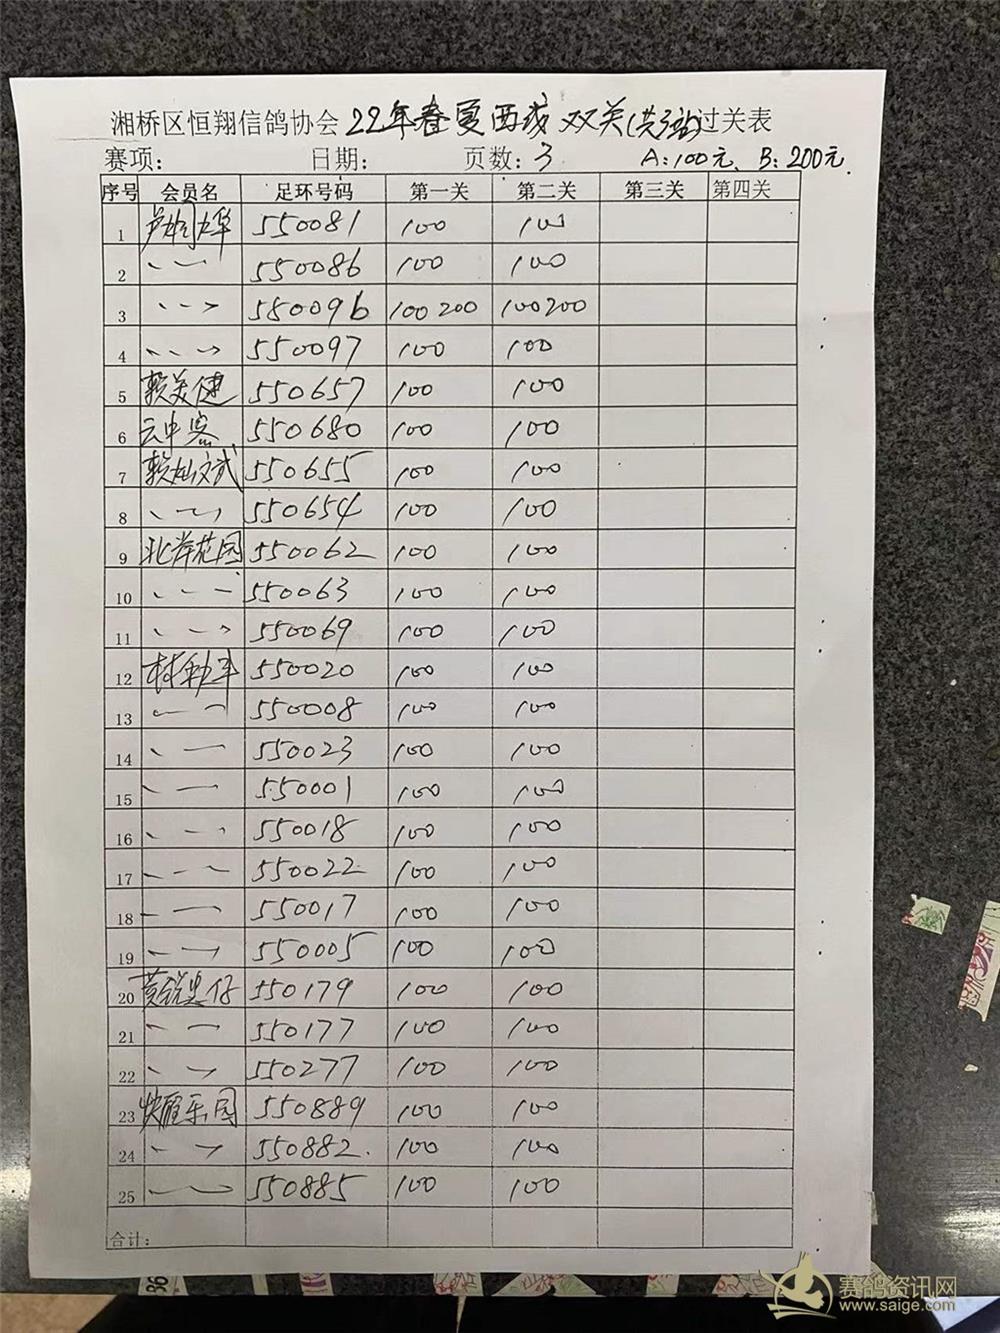 湘桥区恒翔信鸽协会22年春夏西线 双关(共3站)过关表
赛项: 日期: 页数:3 A:100元、B:200元.
序号 会员名 足环号码 第一关 第二关 第三关 第四关
1 550081 100 100
2 550086 100 100
3 550096 100 200 100 200
4 550097 100 100
5 赖美健 550657 100 100
6 云中客 550680 100 100
7 赖灿文武 550655 100 100
8 550654 100 100
9 北岸花园 550062 100 100
10 550063 100 100
11 550069 100 100
12 550020 100 100
13 550008 100 100
14 550023 100 100
15 550001 100 100
16 550018 100 100
17 550022 100 100
18 550017 100 100
19 550005 100 100
20 550179 100 100
21 550177 100 100
22 550277 100 100
23 550889 100 100
24 550882 100 100
25 550885 100 100
合计:
赛鸽资讯网
www.saige.com